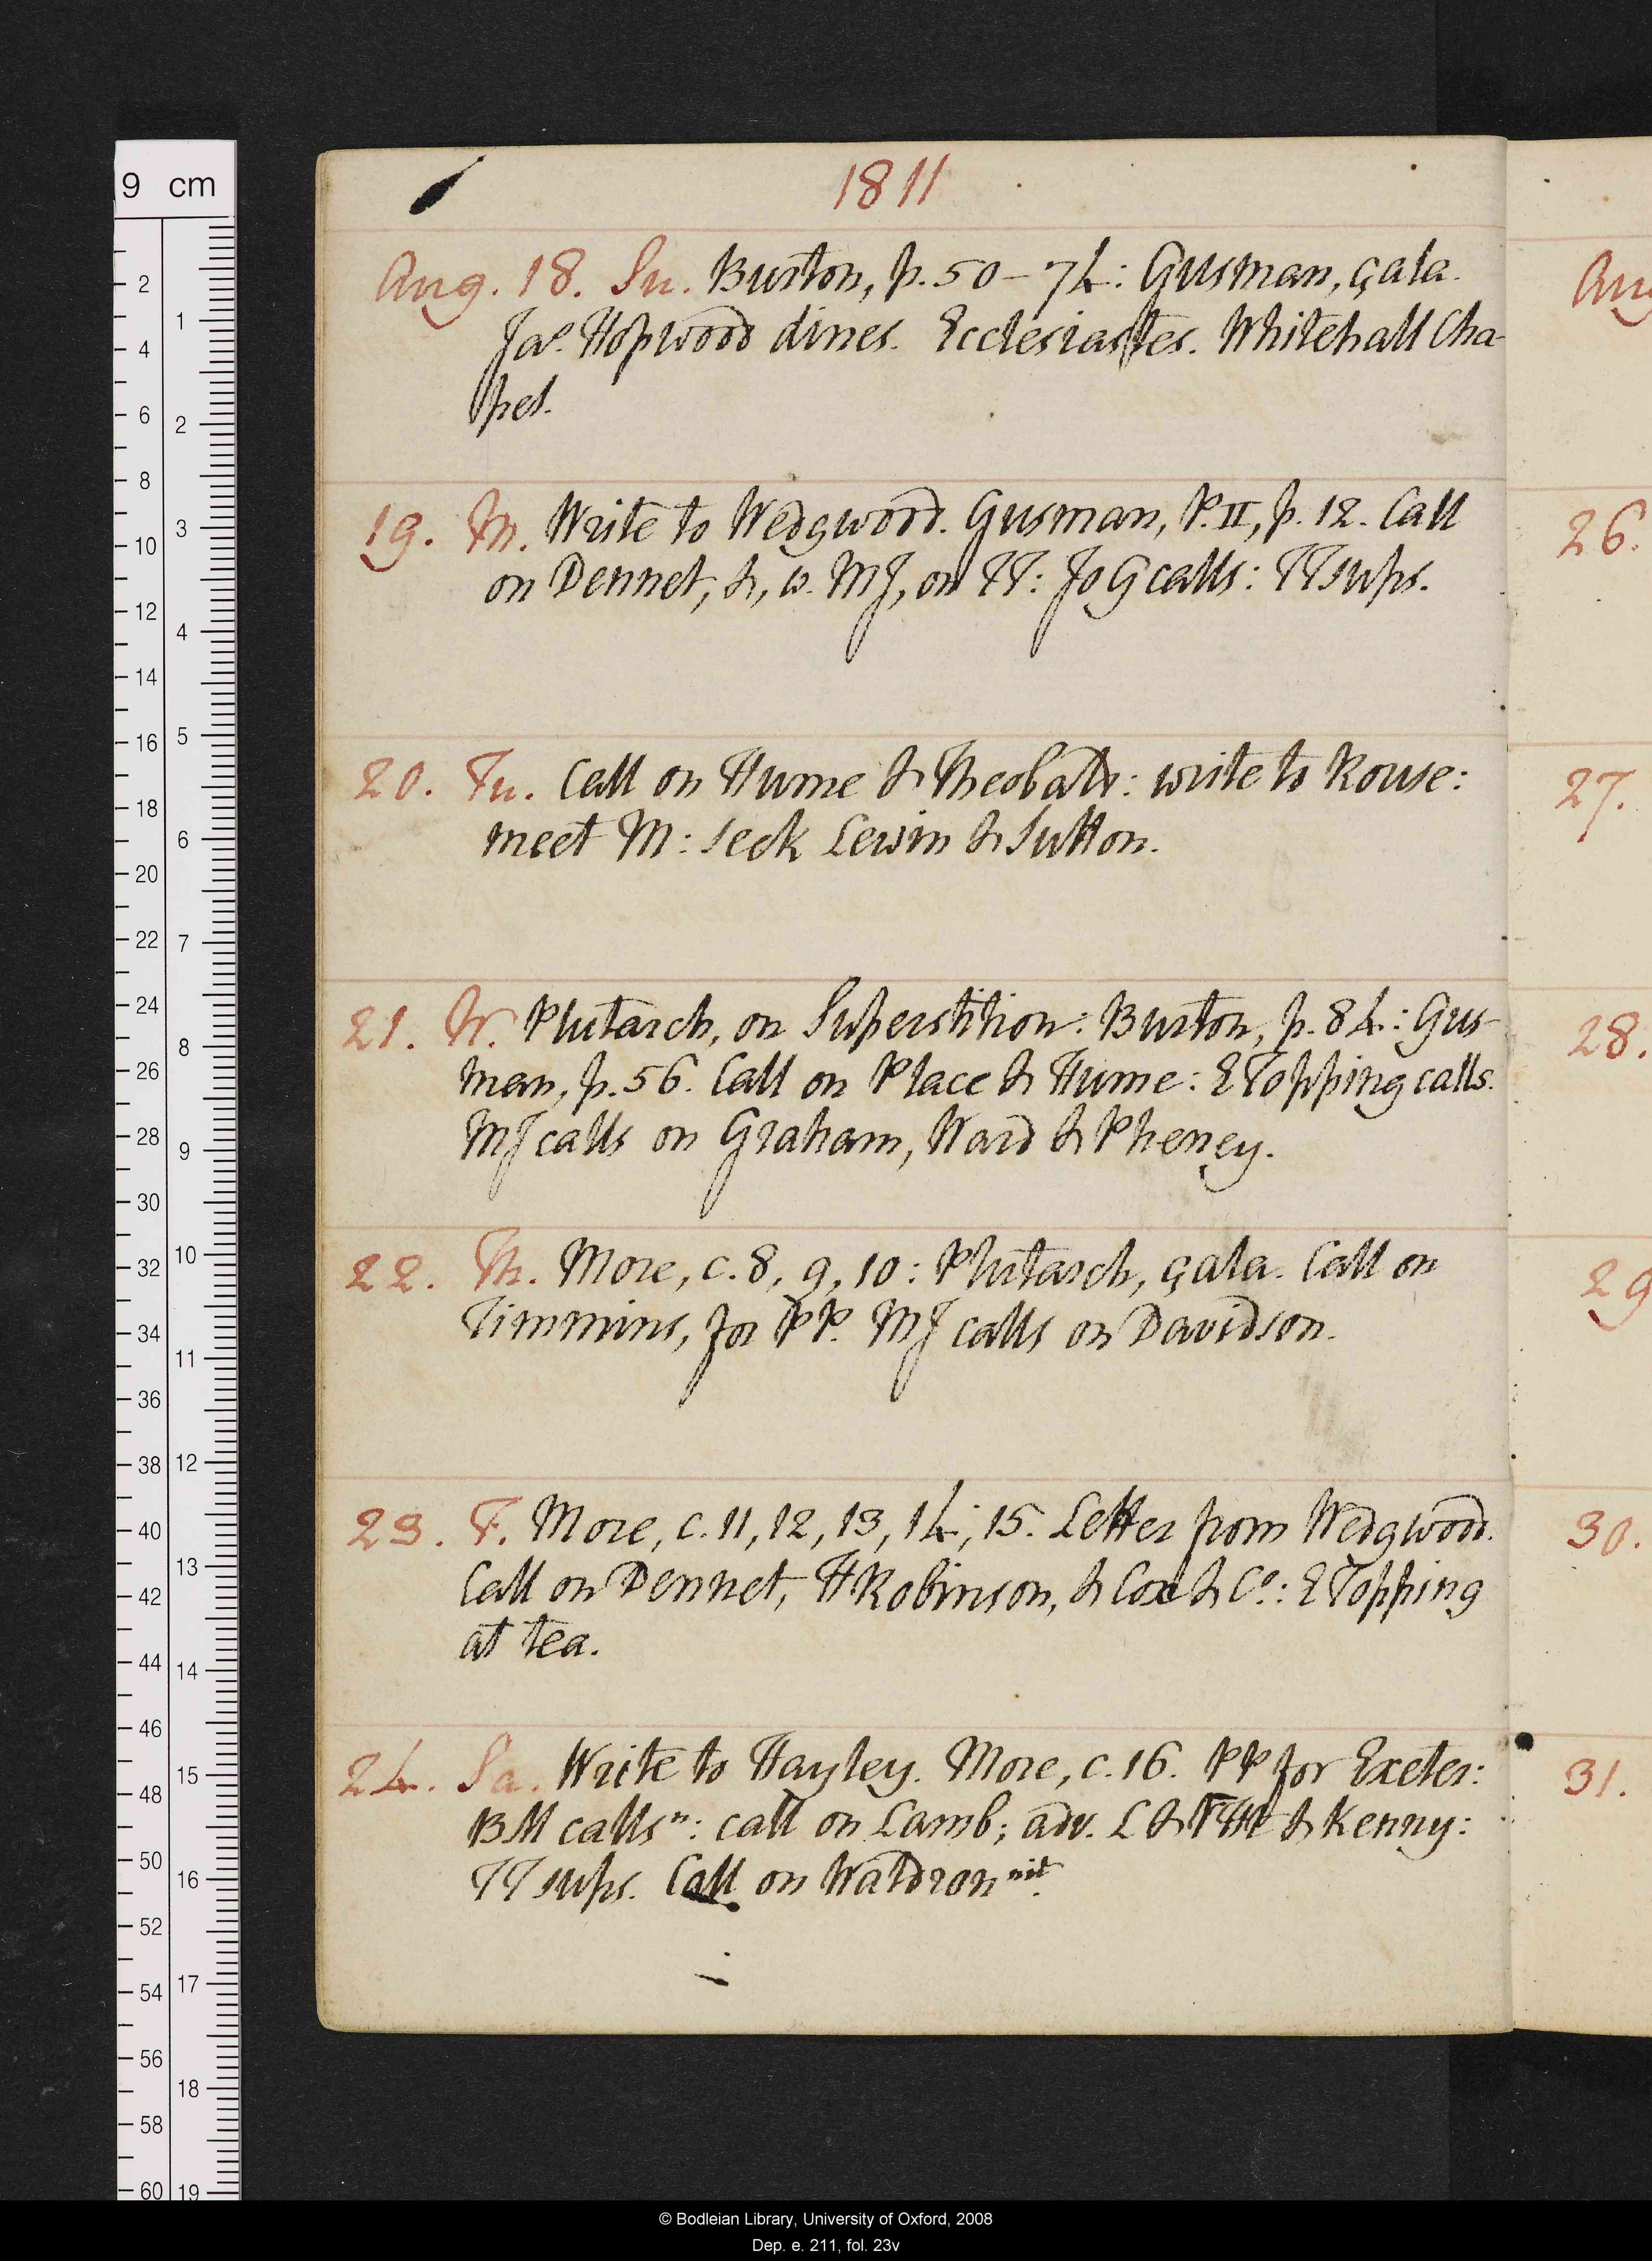 9 cm
1811
Aug. 18. Su. Burton, p. 50–74: Gusman, çala.
Jas. Hopwood dines. Ecclesiastes. Whitehall Cha-
pel.
19. M. Write to Wedgwood. Gusman, P. II, p. 12. Call
on Dennet, &, w. MJ, on TT: Jo G calls: TT sups.
20. Tu. Call on Hume & Theobald: write to Rouse:
meet M: seek Lewin & Sutton.
21. W. Plutarch, on Superstition: Burton, p. 84: Gus-
man, p. 56. Call on Place & Hume: E Topping calls.
MJ calls on Graham, Ward & Pheney.
22. Th. More, c. 8, 9, 10: Plutarch, çala. Call on
Timmins, for PP. MJ calls on Davidson.
23. F. More, c. 11, 12, 13, 14, 15. Letter from Wedgwood.
Call on Dennet, H Robinson, & Cox & Co.: E Topping
at tea.
24. Sa. Write to Hayley. More, c. 16. PP for Exeter:
BM calls n: call on Lamb; adv. L & & Kenny:
TT sups. Call on Waldron nit.
Au
26.
27.
28.
29
30.
31.
2
4
6
8
10
12
14
16
18
20
22
24
26
28
30
32
34
36
38
40
42
44
46
48
50
52
54
56
58
60
1
2
3
4
5
6
7
8
9
10
11
12
13
14
15
16
17
18
19
© Bodleian Library, University of Oxford, 2008
Dep. e. 211, fol. 23v